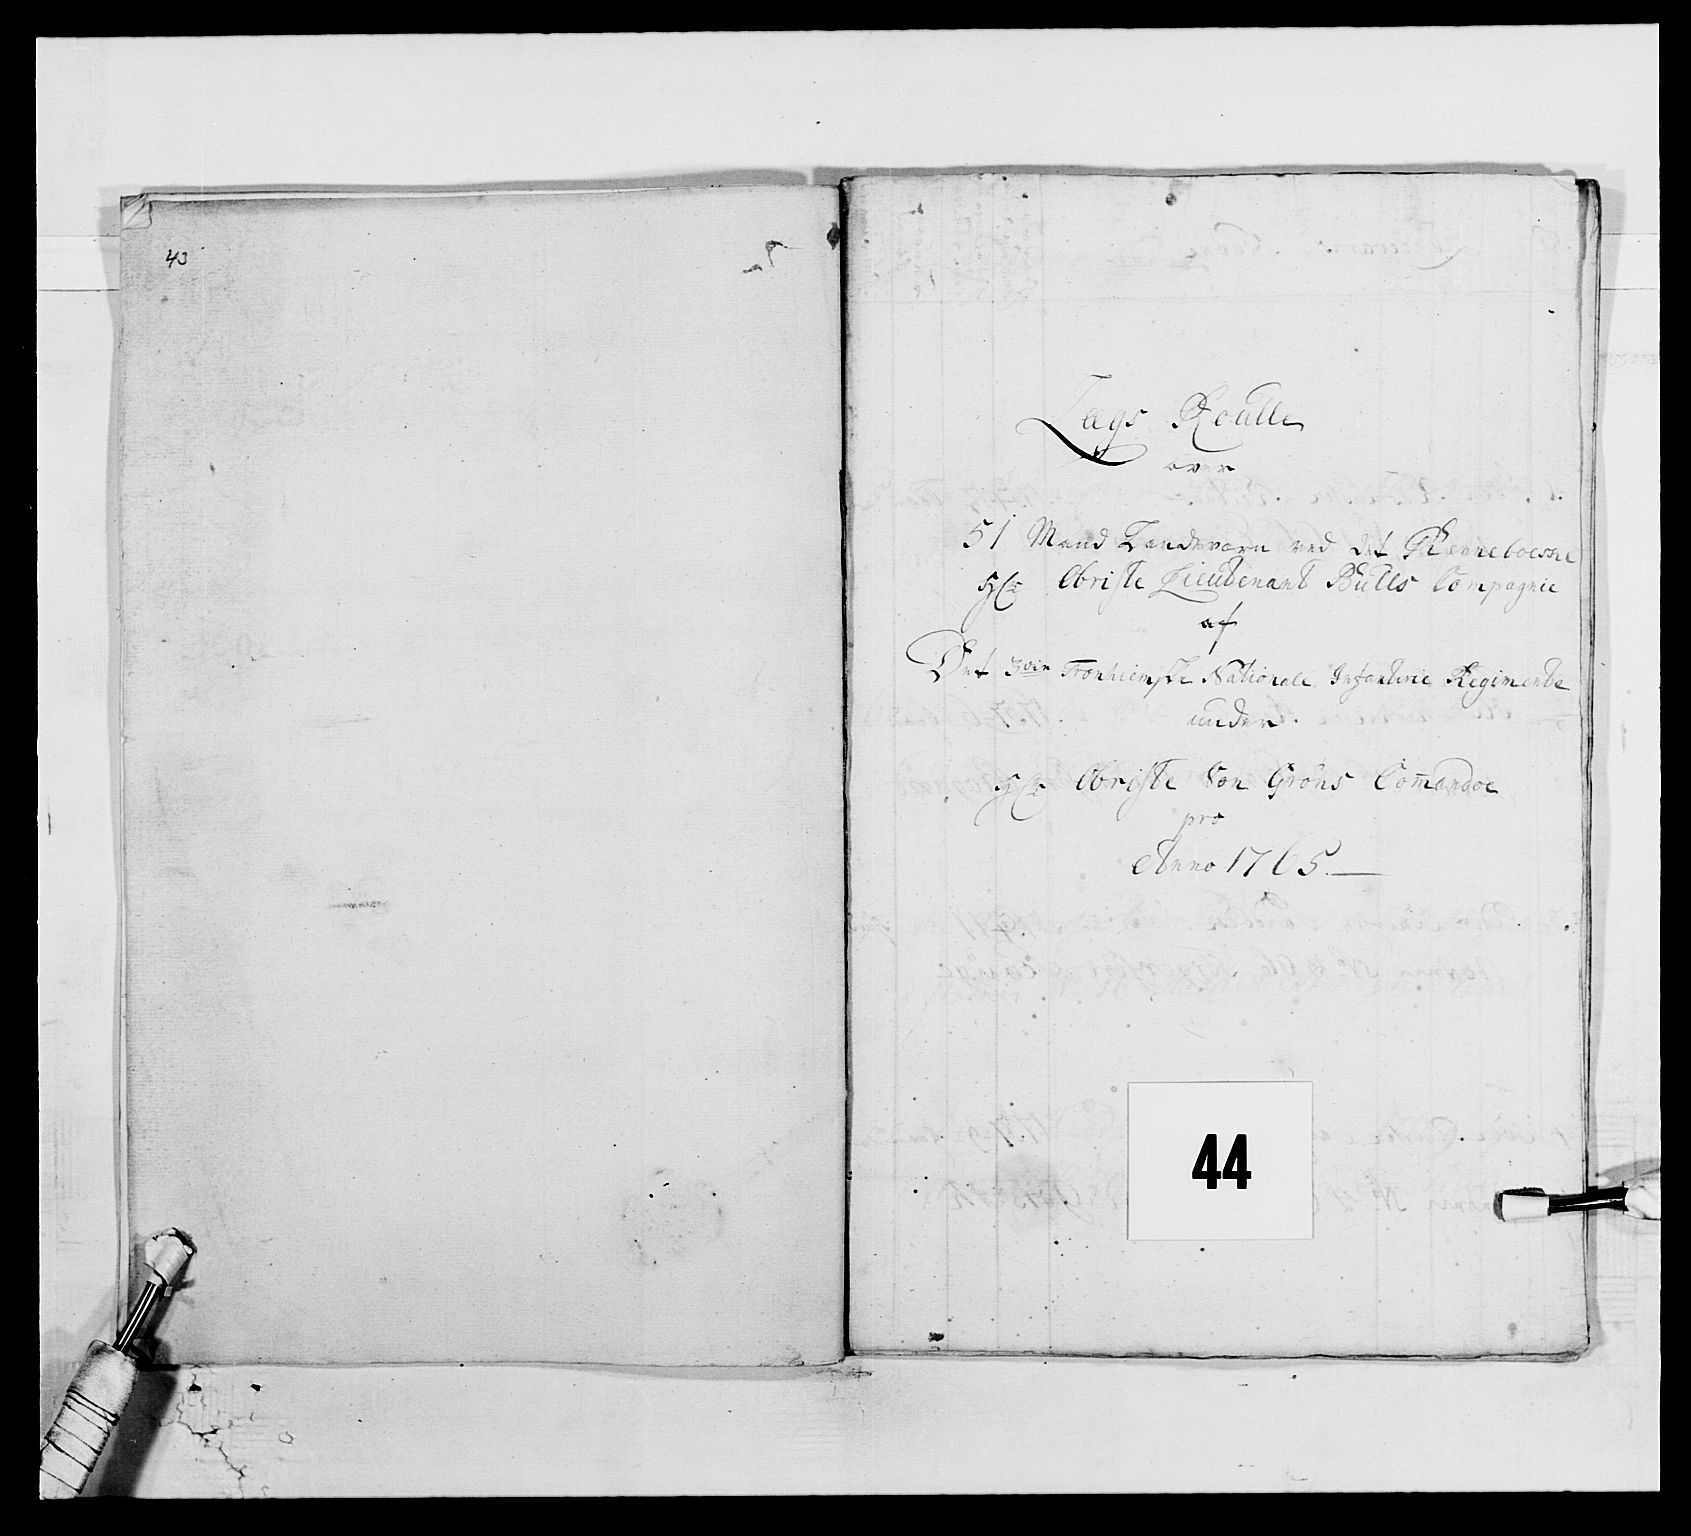 43
Lægs Roulle
over
51 Mand Landeværn ved det Renneboeske
Hr Obriste Lieutenant Bulls Compagnie
af
Det 3die Tronhiemske Nationale Infanterie Regimente
under
Hr Obriste Von Grøns Comandoe
pro
Anno 1765.
44